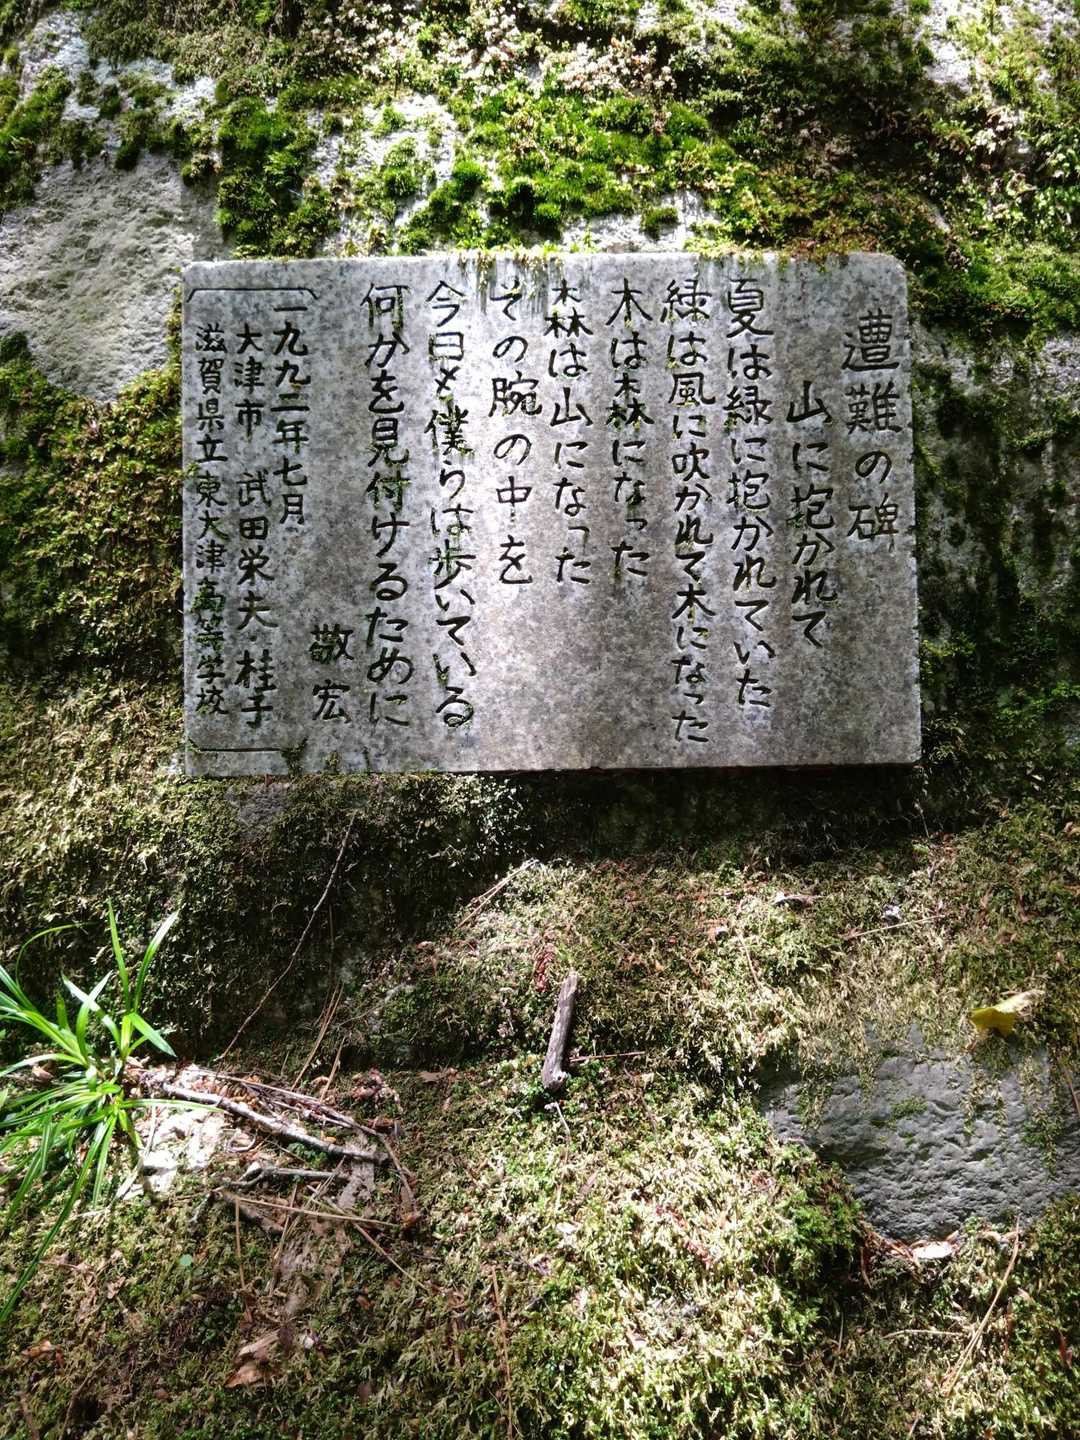 遭難の碑
山に抱かれて
夏は緑に抱かれていた
緑は風に吹かれて木になった
木は森になった
森は山になった
その腕の中を
今日も僕らは歩いている
何かを見付けるために
敬宏
一九九二年七月
大津市 武田栄夫・桂子
滋賀県立東大津高等学校